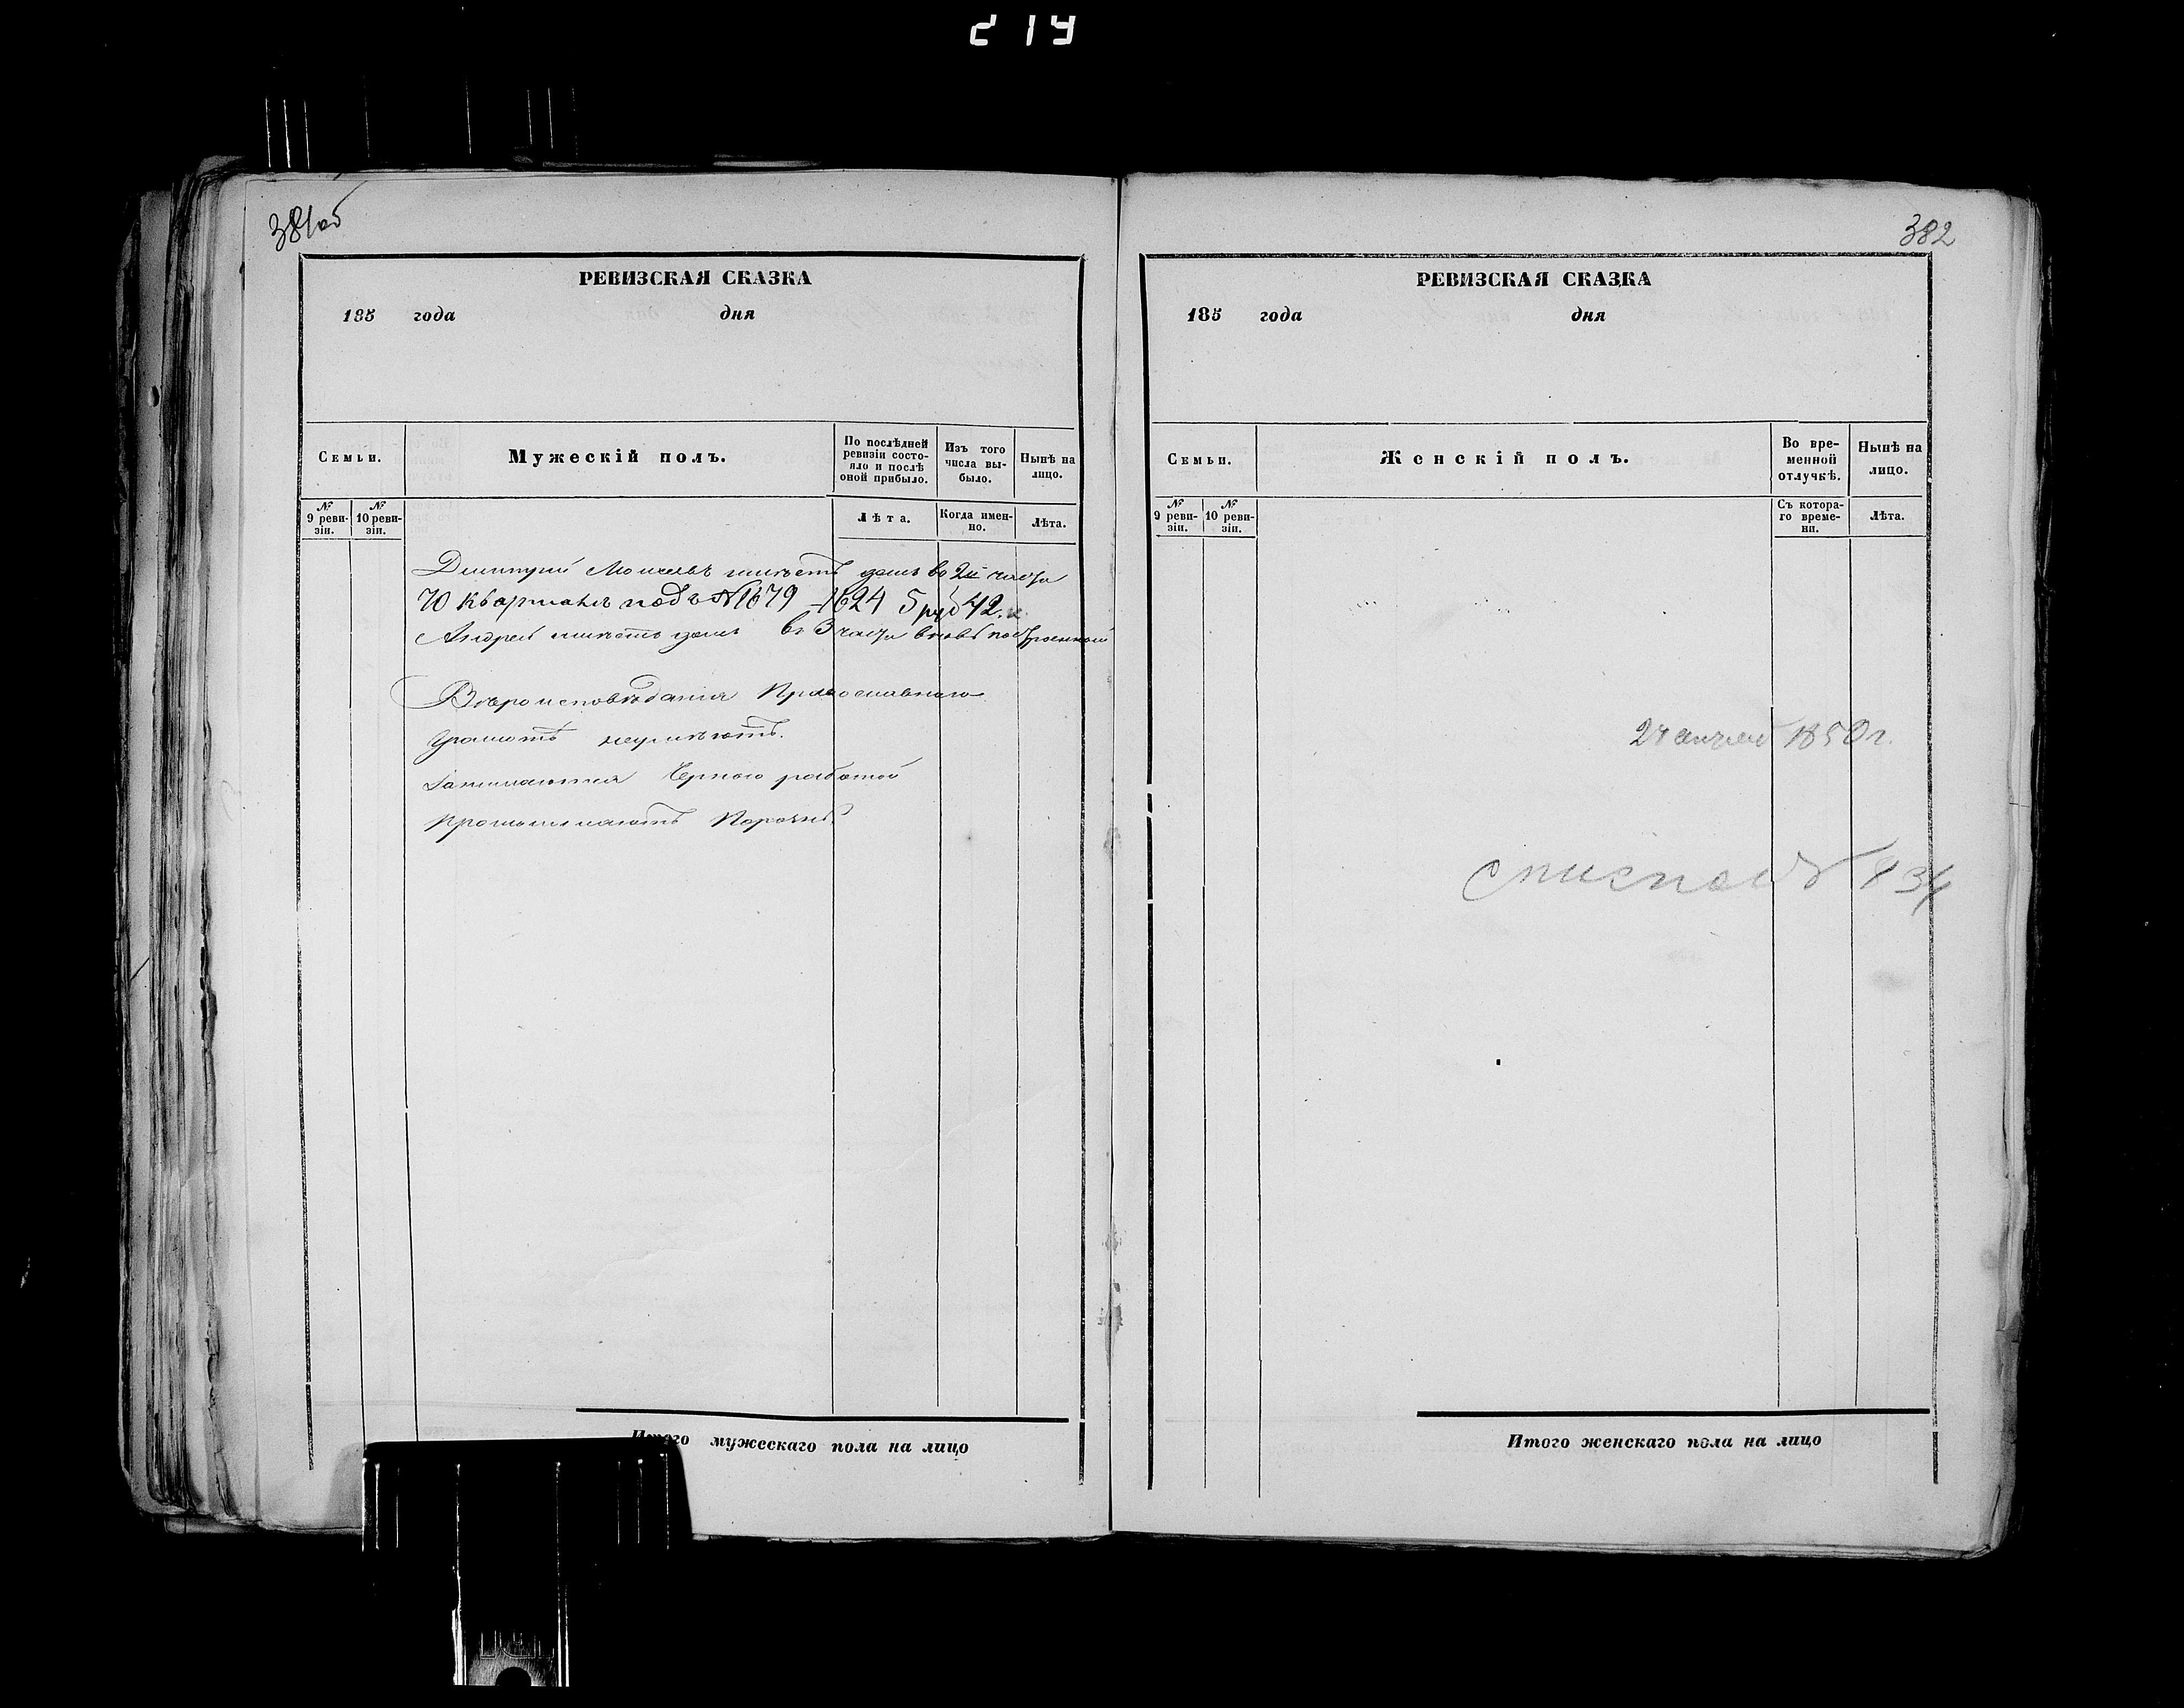 219
381об
РЕВИЗСКАЯ СКАЗКА
185 года дня
Семьи.
Мужескій полъ.
По послѣдней ревизіи состояло и послѣ оной прибыло.
Изъ того числа выбыло.
Нынѣ на лицо.
№ 9 ревизіи.
№ 10 ревизіи.
Лѣта.
Когда именно.
Лѣта.
Дмитрій имѣетъ домъ во 2й части
70 Квартала подъ №1679 1624 5 руб 42.к
Андрей имѣетъ домъ въ 3 части вновь построенный
Вѣроисповѣданія Православнаго
Грамотѣ неумѣютъ.
Занимаются Черною работой
382
РЕВИЗСКАЯ СКАЗКА
185 года дня
Семьи.
Женскій полъ.
Во временной отлучкѣ.
Нынѣ на лицо.
№ 9 ревизіи.
№ 10 ревизіи.
Съ котораго времени.
Лѣта.
1850 г.
Итого мужескаго пола на лицо
Итого женскаго пола на лицо